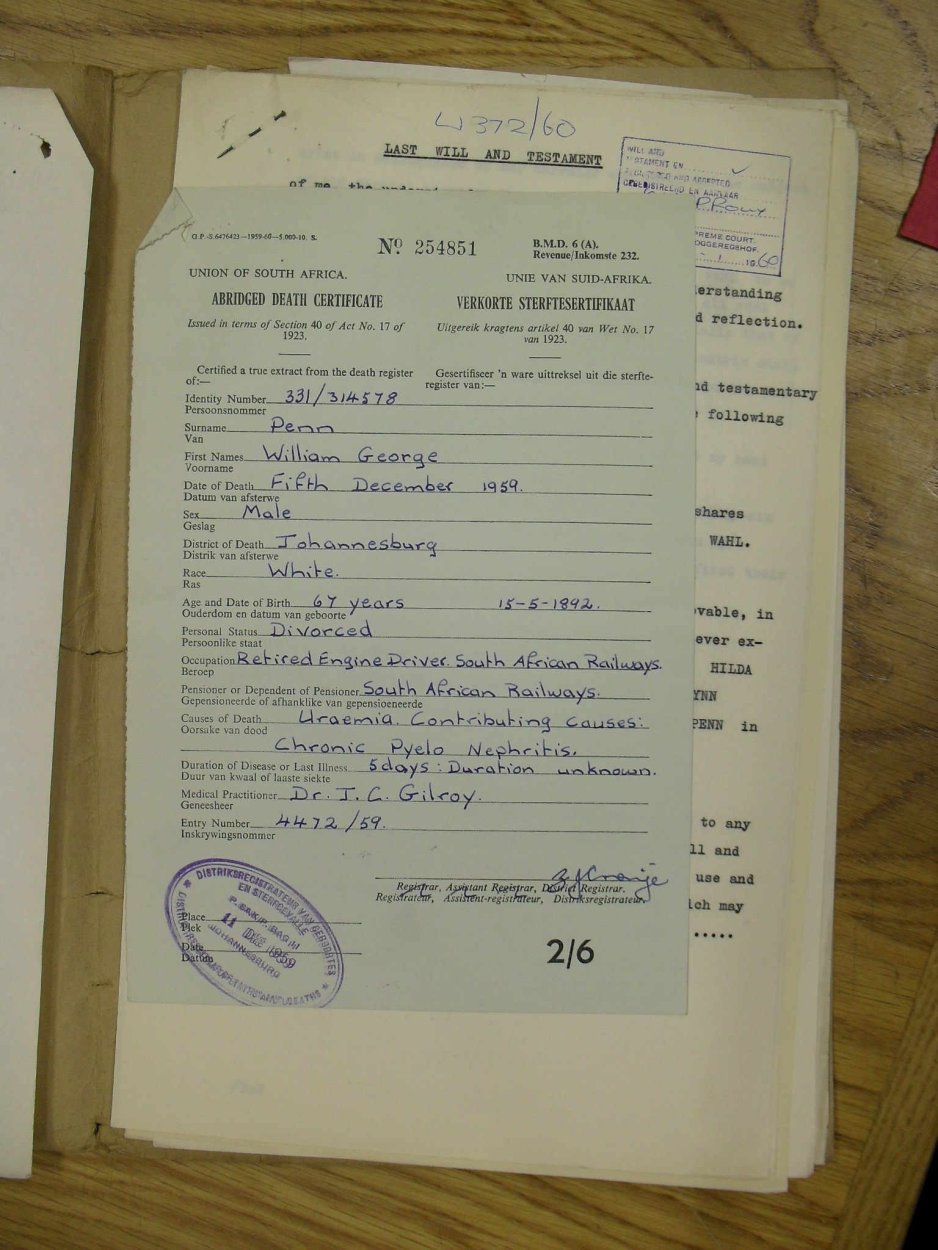 W 372/60
LAST WILL AND TESTAMENT
WILL AND
TESTAMENT EN
REGISTERED AND ACCEPTED
GEREGISTREERD EN AANVAAR
of me, the
PREME COURT.
OGGEREGSHOF.
1 1960
G.P.-S.6476423—1959-60—5,000-10. S.
No 254851
B.M.D. 6 (A).
Revenue/Inkomste 232.
UNION OF SOUTH AFRICA.
UNIE VAN SUID-AFRIKA.
ABRIDGED DEATH CERTIFICATE
VERKORTE STERFTESERTIFIKAAT
Issued in terms of Section 40 of Act No. 17 of
1923.
Uitgereik kragtens artikel 40 van Wet No. 17
van 1923.
Certified a true extract from the death register
of:—
Gesertifiseer 'n ware uittreksel uit die sterfte-
register van:—
Identity Number 331/314578
Persoonsnommer
Surname Penn
Van
First Names William George
Voorname
Date of Death Fifth December 1959.
Datum van afsterwe
Sex Male
Geslag
District of Death Johannesburg
Distrik van afsterwe
Race White.
Ras
Age and Date of Birth 67 years 15-5-1892.
Ouderdom en datum van geboorte
Personal Status Divorced
Persoonlike staat
Occupation Retired Engine Driver. South African Railways.
Beroep
Pensioner or Dependent of Pensioner South African Railways.
Gepensioeneerde of afhanklike van gepensioeneerde
Causes of Death Uraemia. Contributing causes:
Oorsake van dood
Chronic Pyelo Nephritis.
Duration of Disease or Last Illness 5 days : Duration unknown.
Duur van kwaal of laaste siekte
Medical Practitioner Dr. J. C. Gilroy.
Geneesheer
Entry Number 4472/59.
Inskrywingsnommer
Registrar, Assistant Registrar, District Registrar.
Registrateur, Assistent-registrateur, Distriksregistrateur.
DISTRIKSREGISTRATEUR VAN GEBOORTES
EN STERFGEVALLE
P. SAK/P. BAG
11 DEC 1959
JOHANNESBURG
Place
Plek
Date
Datum
2/6
erstanding
d reflection.
nd testamentary
following
shares
WAHL.
vable, in
ever ex-
HILDA
YNN
PENN in
to any
ll and
use and
ich may
.....